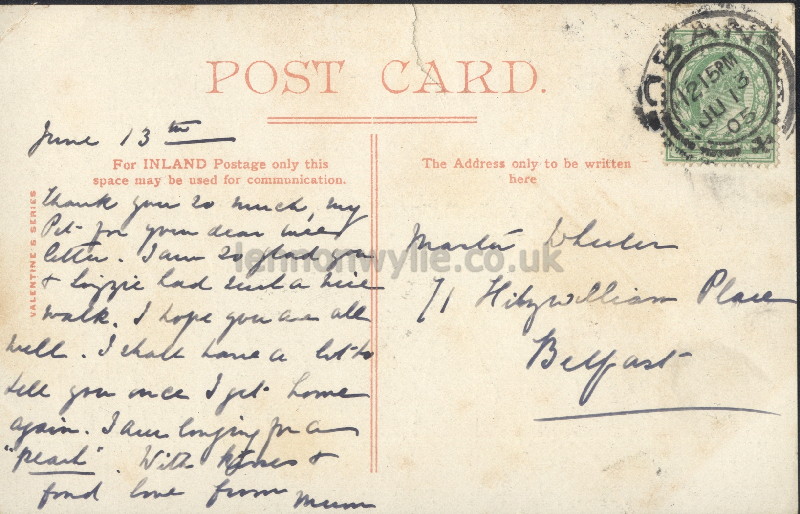 POST CARD.
June 13th
For INLAND Postage only this
space may be used for communication.
VALENTINE'S SERIES
Thank you so much, my
Pet for your dear wee
letter. I am so glad you
& Lizzie had such a nice
walk. I hope you are all
well. I shall have a lot to
tell you once I get home
again. I am longing for a
"peach". With kisses &
fond love from Mum
The Address only to be written
here
Master Wheeler
71 Fitzwilliam Place
Belfast
12 15 PM
JU 13
05
lennonwylie.co.uk